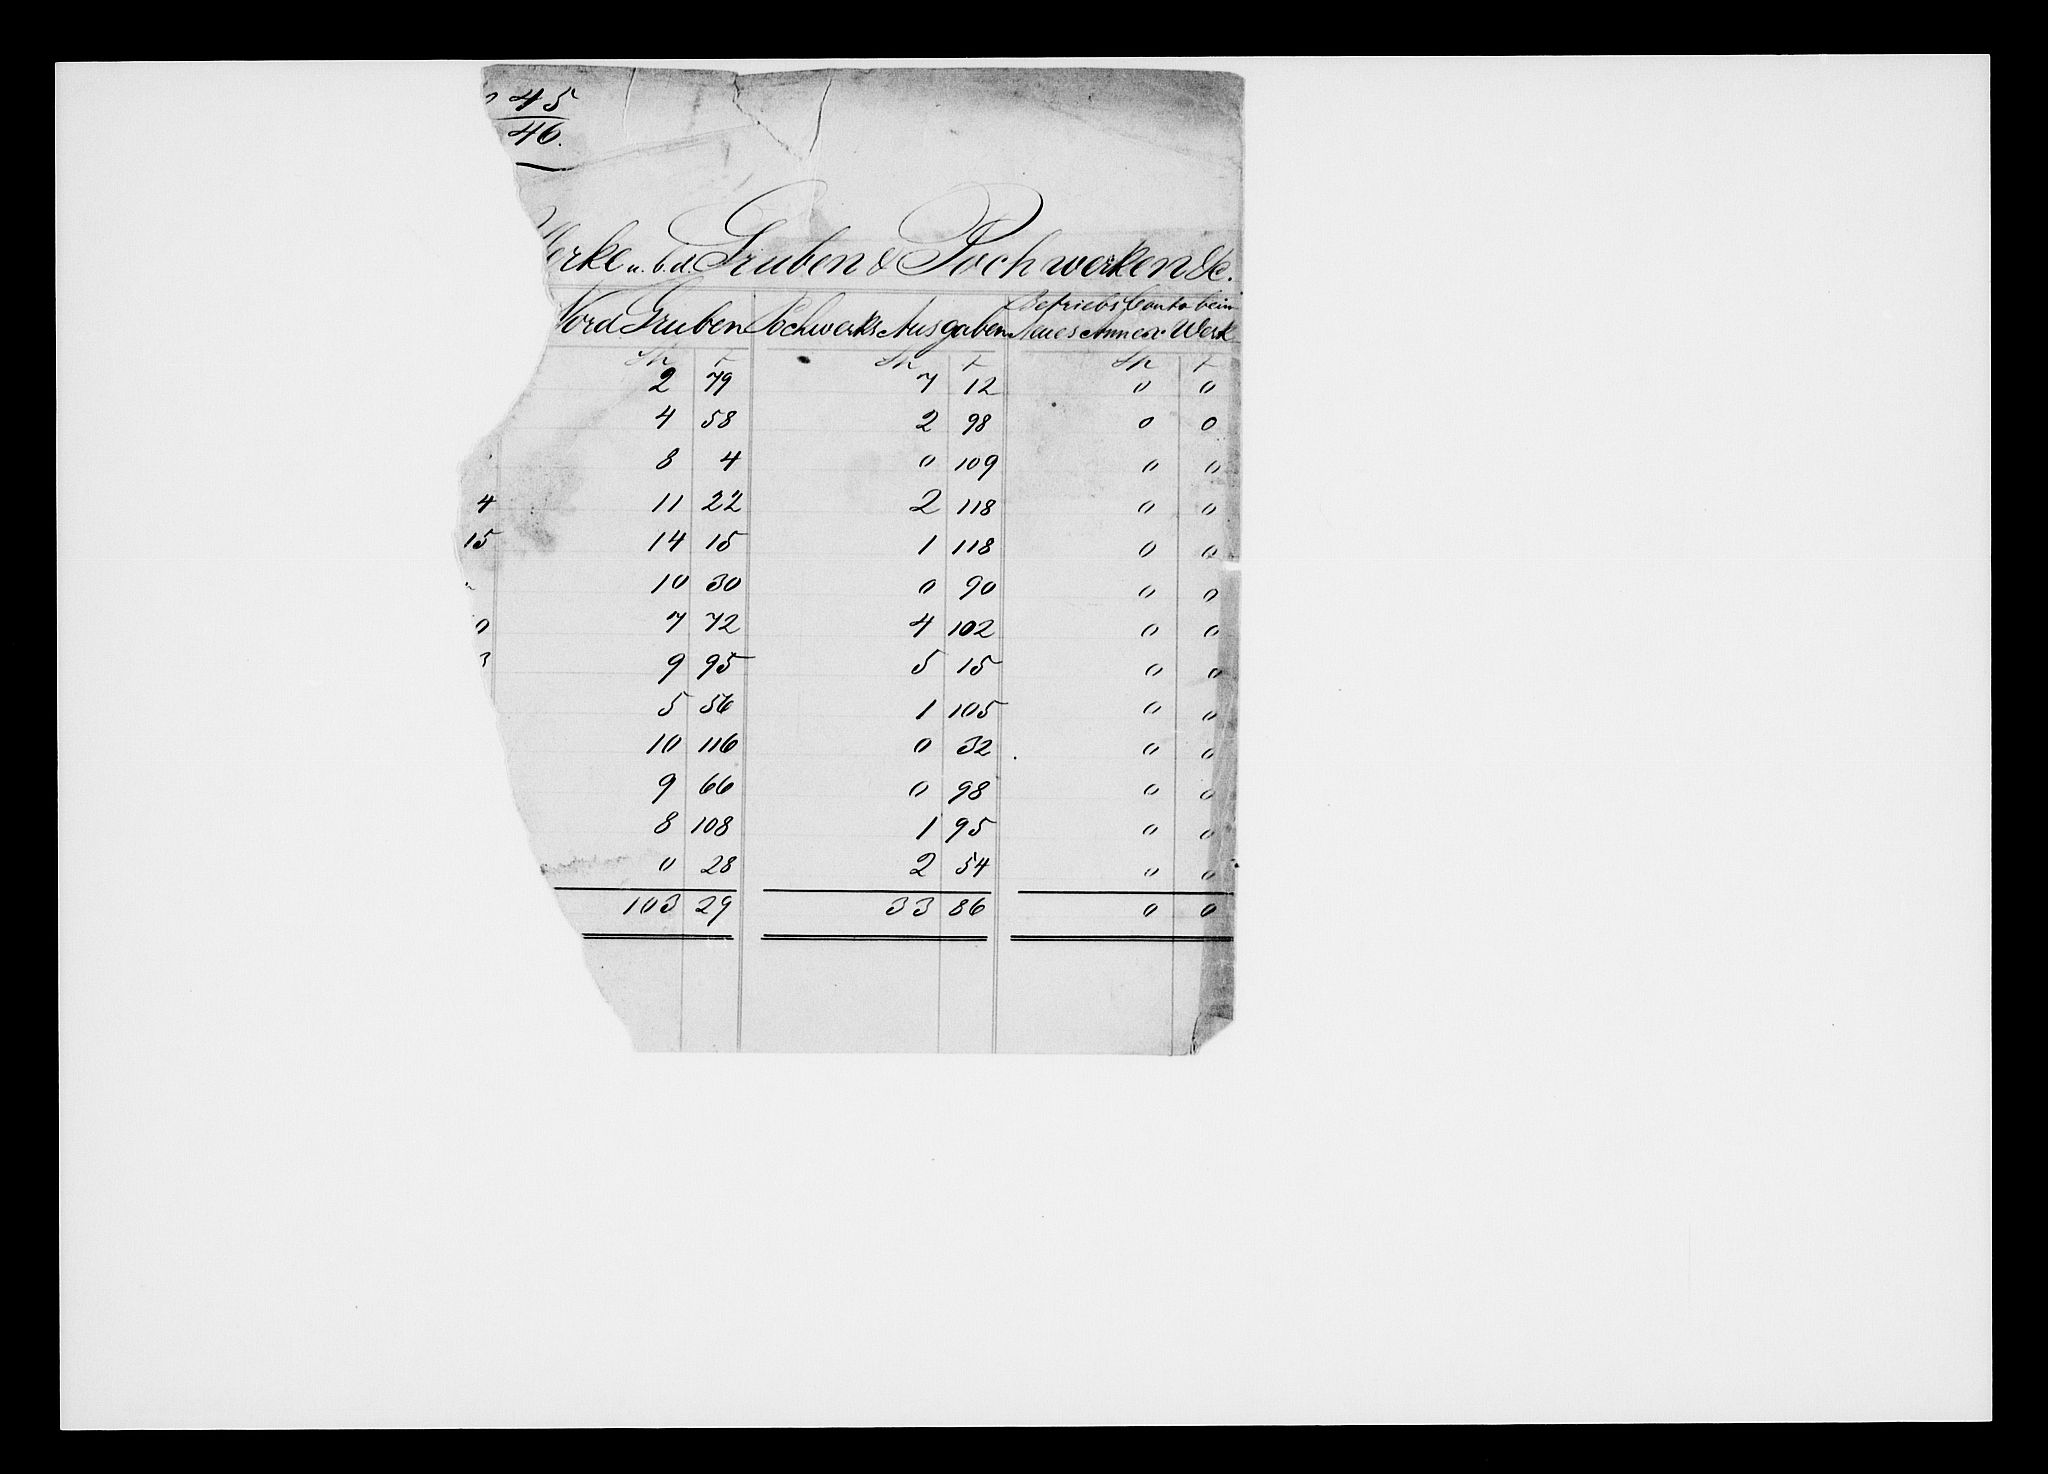 45
46.
Werke u. b. d. Gruben & Pochwerken &c.
Nord Gruben Pochwerks Ausgaben Betriebs Conto beim
Neues Annex Werk
Sp ß Sp ß Sp ß
2 79 7 12 0 0
4 58 2 98 0 0
8 4 0 109 0 0
4 11 22 2 118 0 0
15 14 15 1 118 0 0
10 30 0 90 0 0
0 7 72 4 102 0 0
3 9 95 5 15 0 0
5 56 1 105 0 0
10 116 0 32 0 0
9 66 0 98 0 0
8 108 1 95 0 0
0 28 2 54 0 0
103 29 33 86 0 0